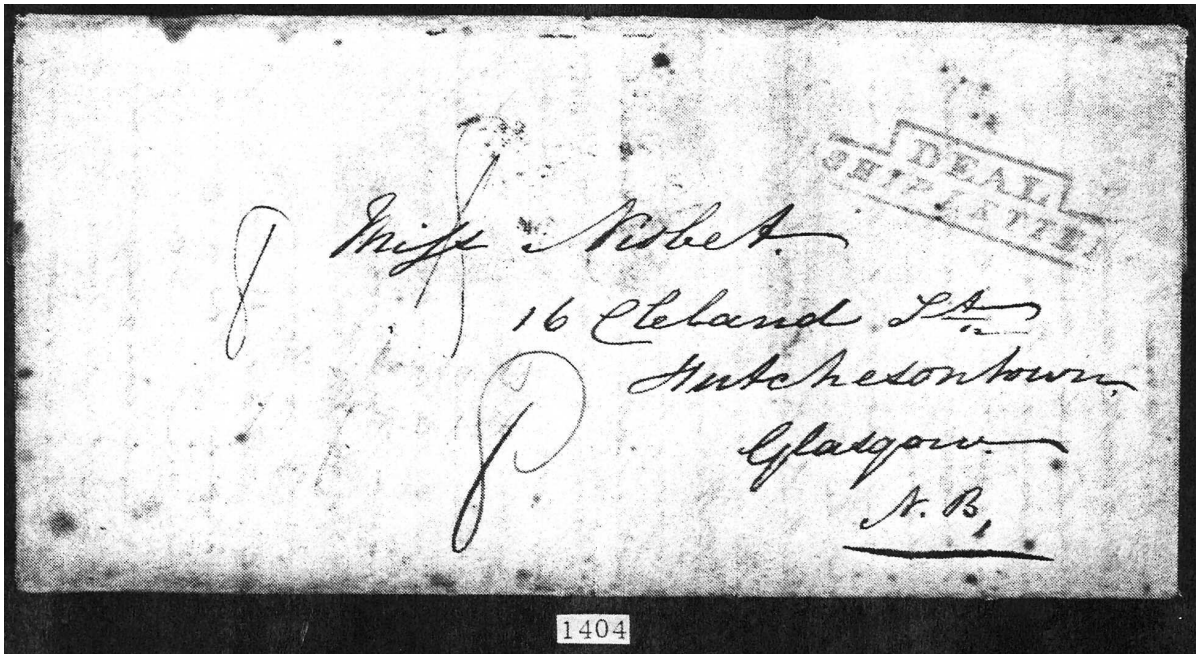 DEAL
SHIP LETTER
8
Miss Nisbet.
16 Cleland St
Hutchesontown.
8
Glasgow.
N. B,
1404